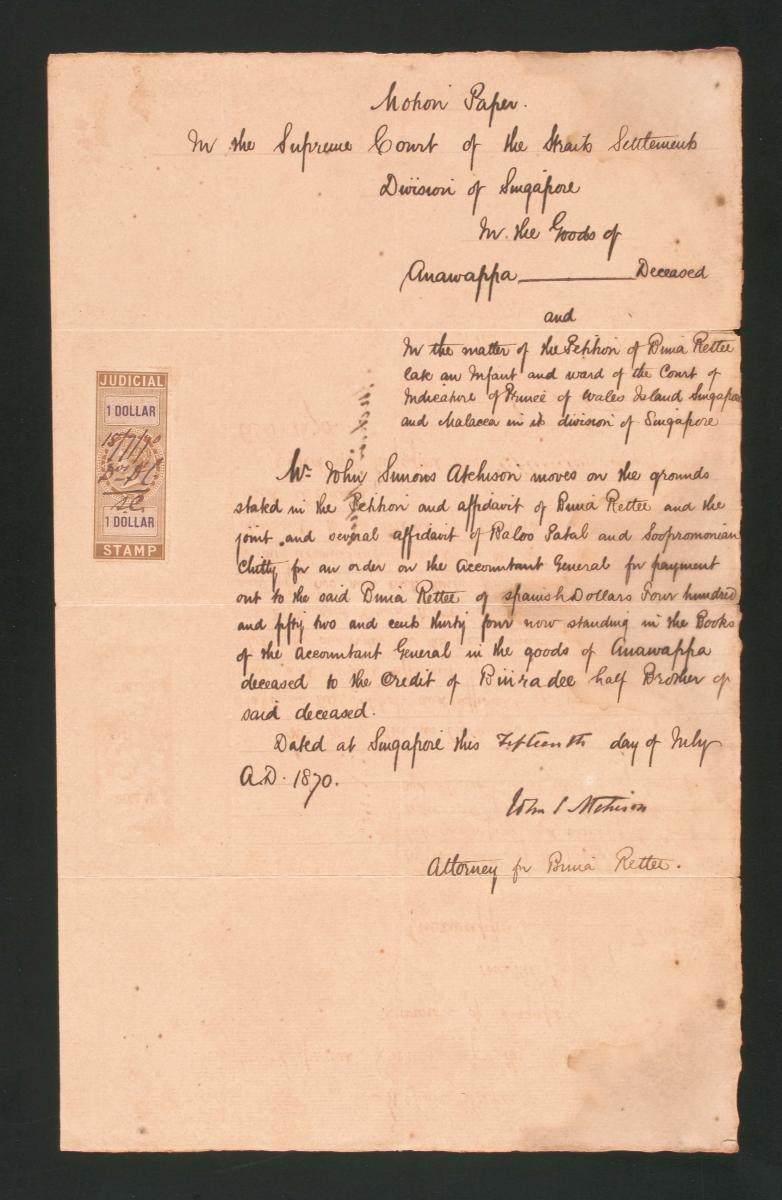 Motion Paper.
In the Supreme Court of the Straits Settlements
Division of Singapore
In the Goods of
Anawappa Deceased
and
In the matter of the Petition of Binia Rettee
late an Infant and ward of the Court of
Judicature of Prince of Wales Island Singapore
and Malacca in its division of Singapore
JUDICIAL
1 DOLLAR
15/7/70
1 DOLLAR
STAMP
Mr. John Simons Atchison moves on the grounds
stated in the Petition and affidavit of Binia Rettee and the
joint and several affidavit of Baloo Patal and Soopromonian
Chitty for an order on the Accountant General for payment
out to the said Binia Rettee of Spanish Dollars Four hundred
and fifty two and cents thirty four now standing in the Books
of the Accountant General in the goods of Anawappa
deceased to the Credit of half Brother of
said deceased.
Dated at Singapore this Fifteenth day of July
A.D. 1870.
John S Atchison
Attorney for Binia Rettee.